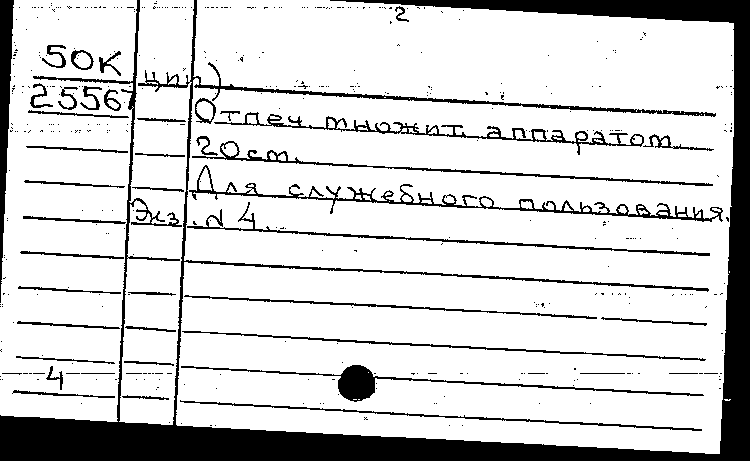 2
50К
ции).
25567
Отпеч. множит. аппаратом.
20 см.
Для служебного пользования.
Экз. N 4.
4